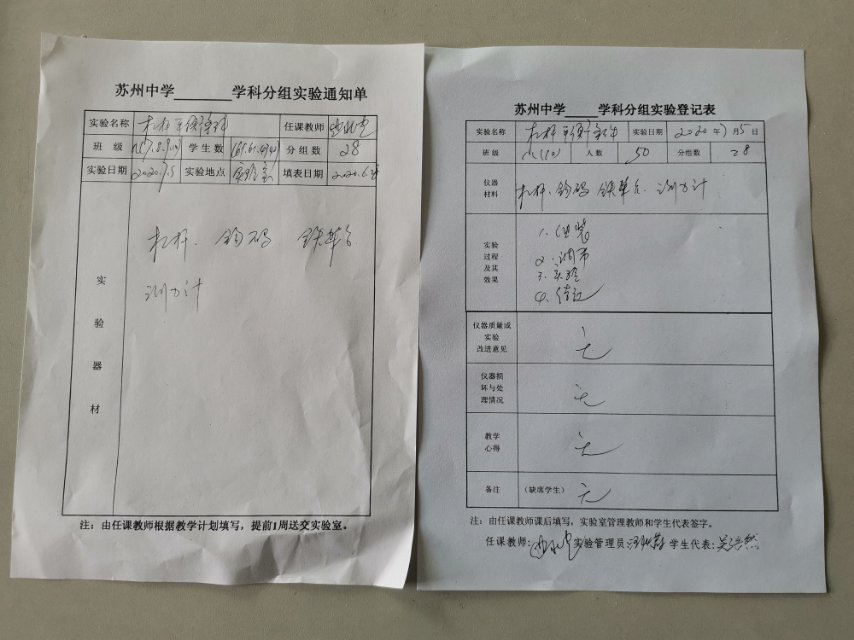 苏州中学______学科分组实验通知单
实验名称 杠杆平衡条件 任课教师
班 级 学生数 分组数 28
实验日期 2020.7.5 实验地点 实验室 填表日期
实验器材
杠杆、钩码 铁架台
测力计
注：由任课教师根据教学计划填写，提前1周送交实验室。
苏州中学____学科分组实验登记表
实验名称 杠杆平衡条件 实验日期 2020年7月5日
班级 人数 50 分组数 28
仪器材料 杠杆、钩码、铁架台、测力计
实验过程及其效果
1、组装
2、调节
3、实验
4、结论
仪器质量或实验改进意见 无
仪器损坏与处理情况 无
教学心得 无
备注 （缺席学生） 无
注：由任课教师课后填写，实验室管理教师和学生代表签字。
任课教师: 实验管理员: 学生代表: 吴浩然